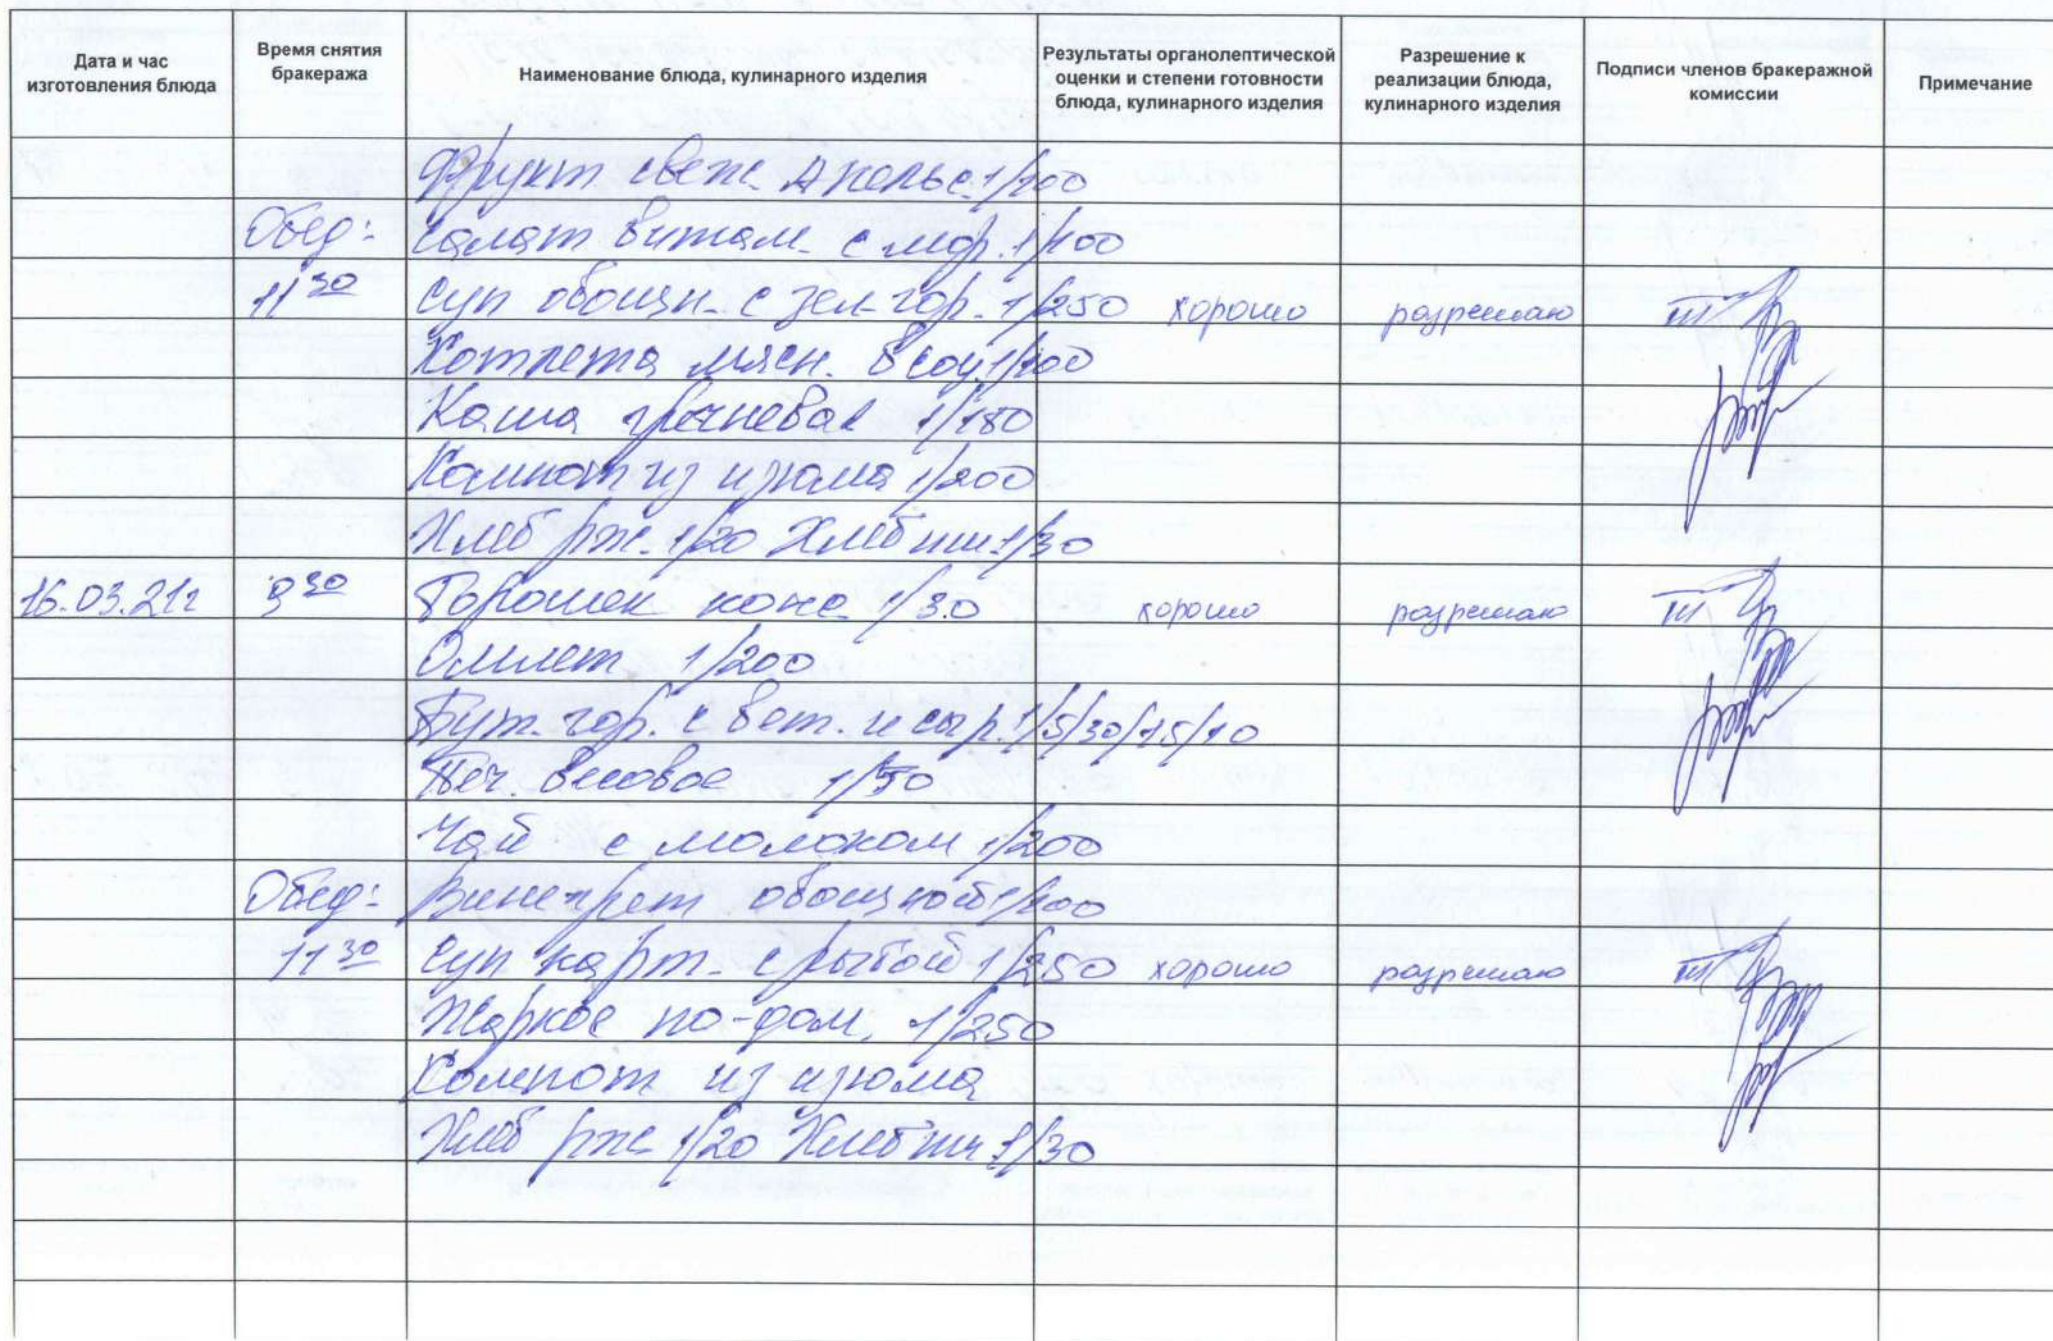 Дата и час изготовления блюда
Время снятия бракеража
Наименование блюда, кулинарного изделия
Результаты органолептической оценки и степени готовности блюда, кулинарного изделия
Разрешение к реализации блюда, кулинарного изделия
Подписи членов бракеражной комиссии
Примечание
Фрукт свеж. Апельс. 1/100
Обед: Салат витам. с мор. 1/100
11 30 Суп овощн. с зел. гор. 1/250 хорошо разрешаю
Котлета мясн. в соу. 1/100
Каша гречневая 1/180
Компот из изюма 1/200
Хлеб рж. 1/20 Хлеб пш. 1/30
16.03.21г 9 30 Горошек конс. 1/30 хорошо разрешаю
Омлет 1/200
Бут. гор. с вет. и сыр. 1/5/30/15/10
Печ. весовое 1/50
Чай с молоком 1/200
Обед: Винегрет овощной 1/100
11 30 Суп карт. с рыбой 1/250 хорошо разрешаю
Жаркое по-дом. 1/250
Компот из изюма
Хлеб рж. 1/20 Хлеб пш. 1/30